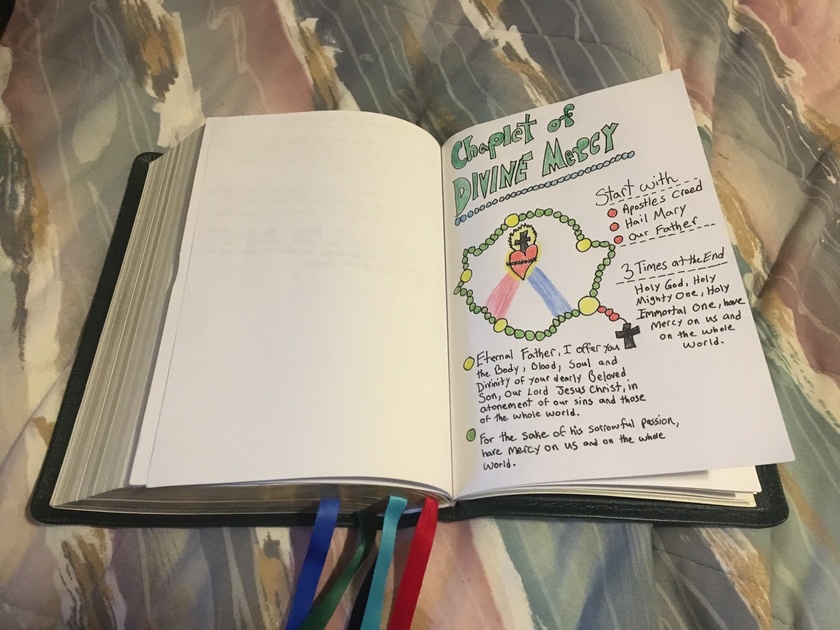 Chaplet of
DIVINE MERCY
Start with
Apostle's Creed
Hail Mary
Our Father
3 Times at the End
Holy God, Holy
Mighty One, Holy
Immortal One, have
Mercy on us and
on the whole
world.
Eternal Father, I offer you
the Body, Blood, Soul and
Divinity of your dearly Beloved
Son, Our Lord Jesus Christ, in
atonement of our sins and those
of the whole world.
For the sake of his sorrowful passion,
have mercy on us and on the whole
world.